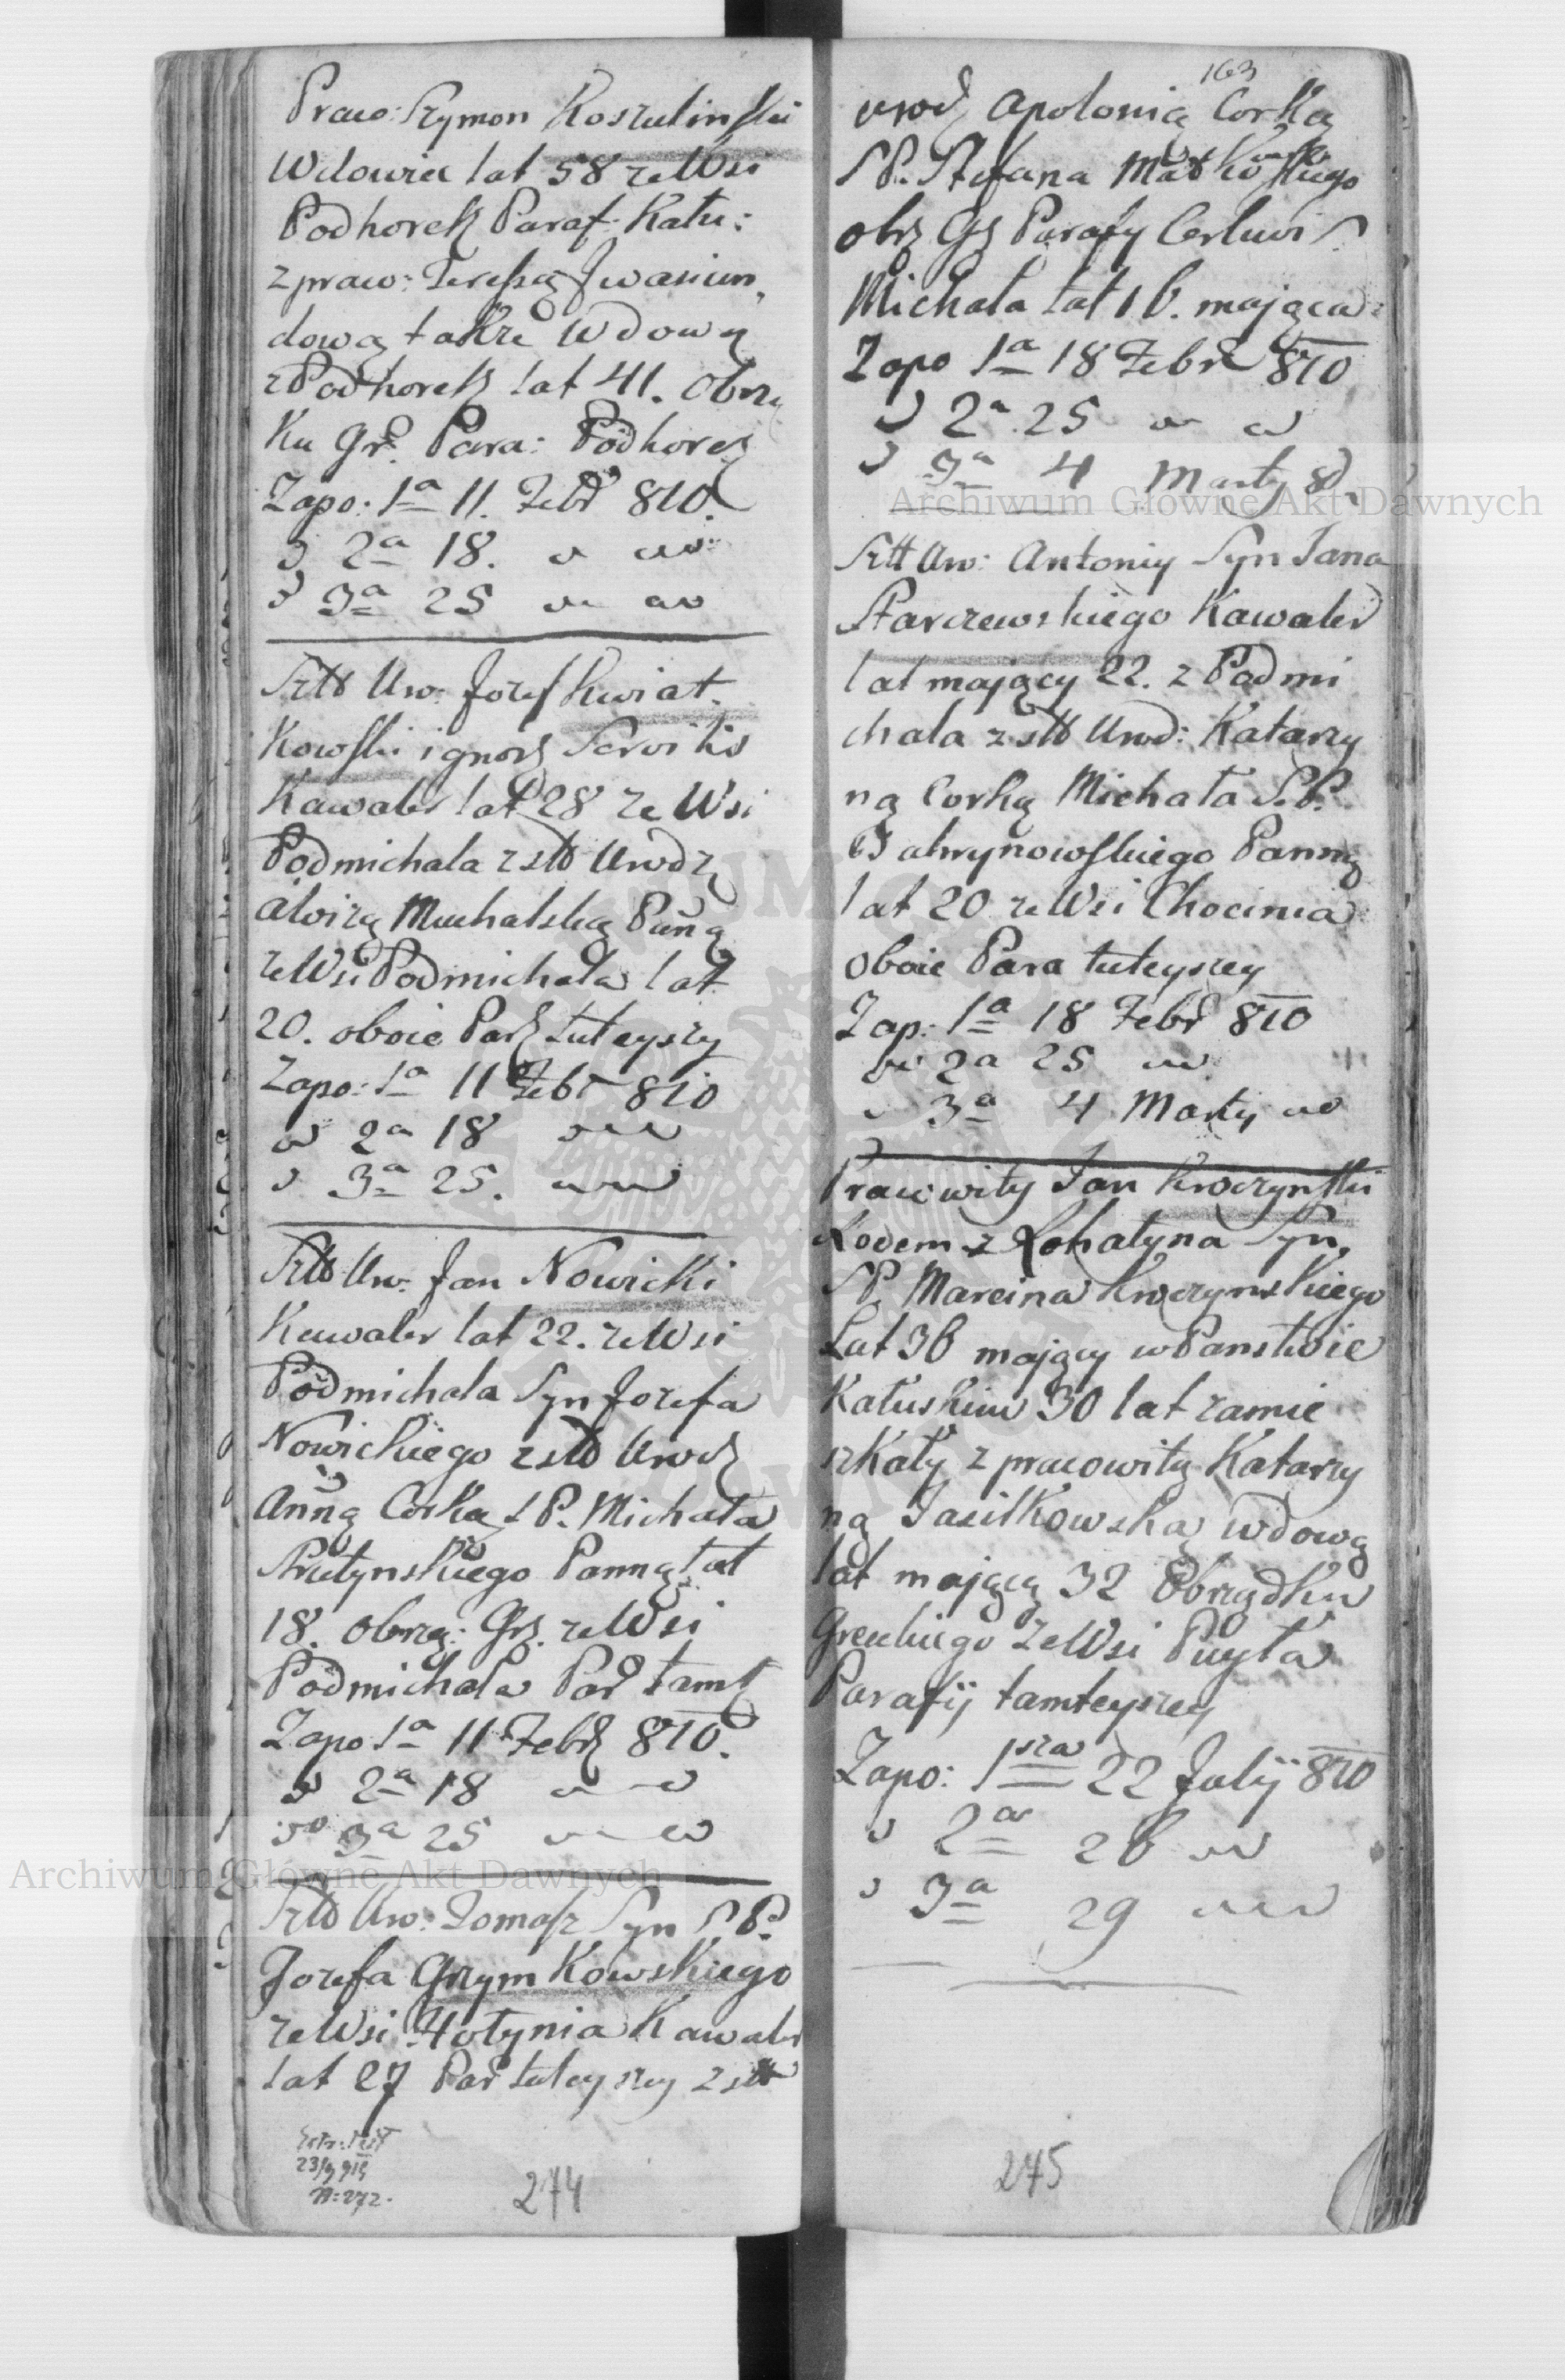 Praco: Szymon Koszulinski
Wdowiec lat 58 ze Wsi
Podhorek Paraf: Kału:
z praw: Teressą Iwasiun,
dową także Wdową
z Podhorek lat 41. Obrzą
Ku Gr. Para: Podhorek
Zapo: 1a 11. Febr 810.
2a 18.
3a 25
Szlt Uro: Jozef Kwiat,
Kowski ignorz Servitis
Kawaler lat 28 ze Wsi
Podmichala z szlt Urodz
Alvizą Muchalską Pañą
ze Wsi Podmichala lat
20. oboie Par tuteyszy
Zapo: 1a 11 Febr 810
2a 18
3a 25.
Szlt Uro: Jan Nowicki
Kawaler lat 22. ze Wsi
Podmichala Syn Jozefa
Nowickiego z szlt Urodz
Añną Corką S P. Michała
Strutynskiego Panną lat
18. obrzą: Gr. ze Wsi
Podmichala Par tamt
Zapo 1a 11 Febr 810.
2a 18
3a 25
Szlt Uro: Tomasz Syn S. P.
Jozefa Grzymkowskiego
ze Wsi Hołynia Kawaler
lat 27 Par tuteyszey z szlt
23/9 919
N: 272.
274
163
urodz Apolonią Corką
S P. Stefana Matkowskiego
obrz Gr Parafy Cerkwi S
Michała lat 16. mającą
Zapo 1a 18 Febr 810
2a 25
3a 4 Marty
Szlt Uro: Antoniy Syn Jana
Starzewskiego Kawaler
lat mający 22. z Podmi
chala z szlt Urod: Katarzy
ną Corką Michała S. P.
Panną
lat 20 ze Wsi Chocinia
oboie Para tuteyszey
Zap: 1a 18 Febr 810
2a 25
3a 4 Marty
Pracowity Jan Kroczynski
Rodem z Rohatyna Syn,
S P. Marcina Kroczynskiego
Lat 36 mający w Panstwie
Kałuskim 30 lat zamie
szkały z pracowitą Katarzy
ną Jasilkowską wdową
lat mającą 32 Obrządku
Greckiego ze Wsi Puyła
Parafij tamteyszey
Zapo: 1sza 22 Julij 810
2a 26
3a 29
245
Archiwum Główne Akt Dawnych
Archiwum Główne Akt Dawnych